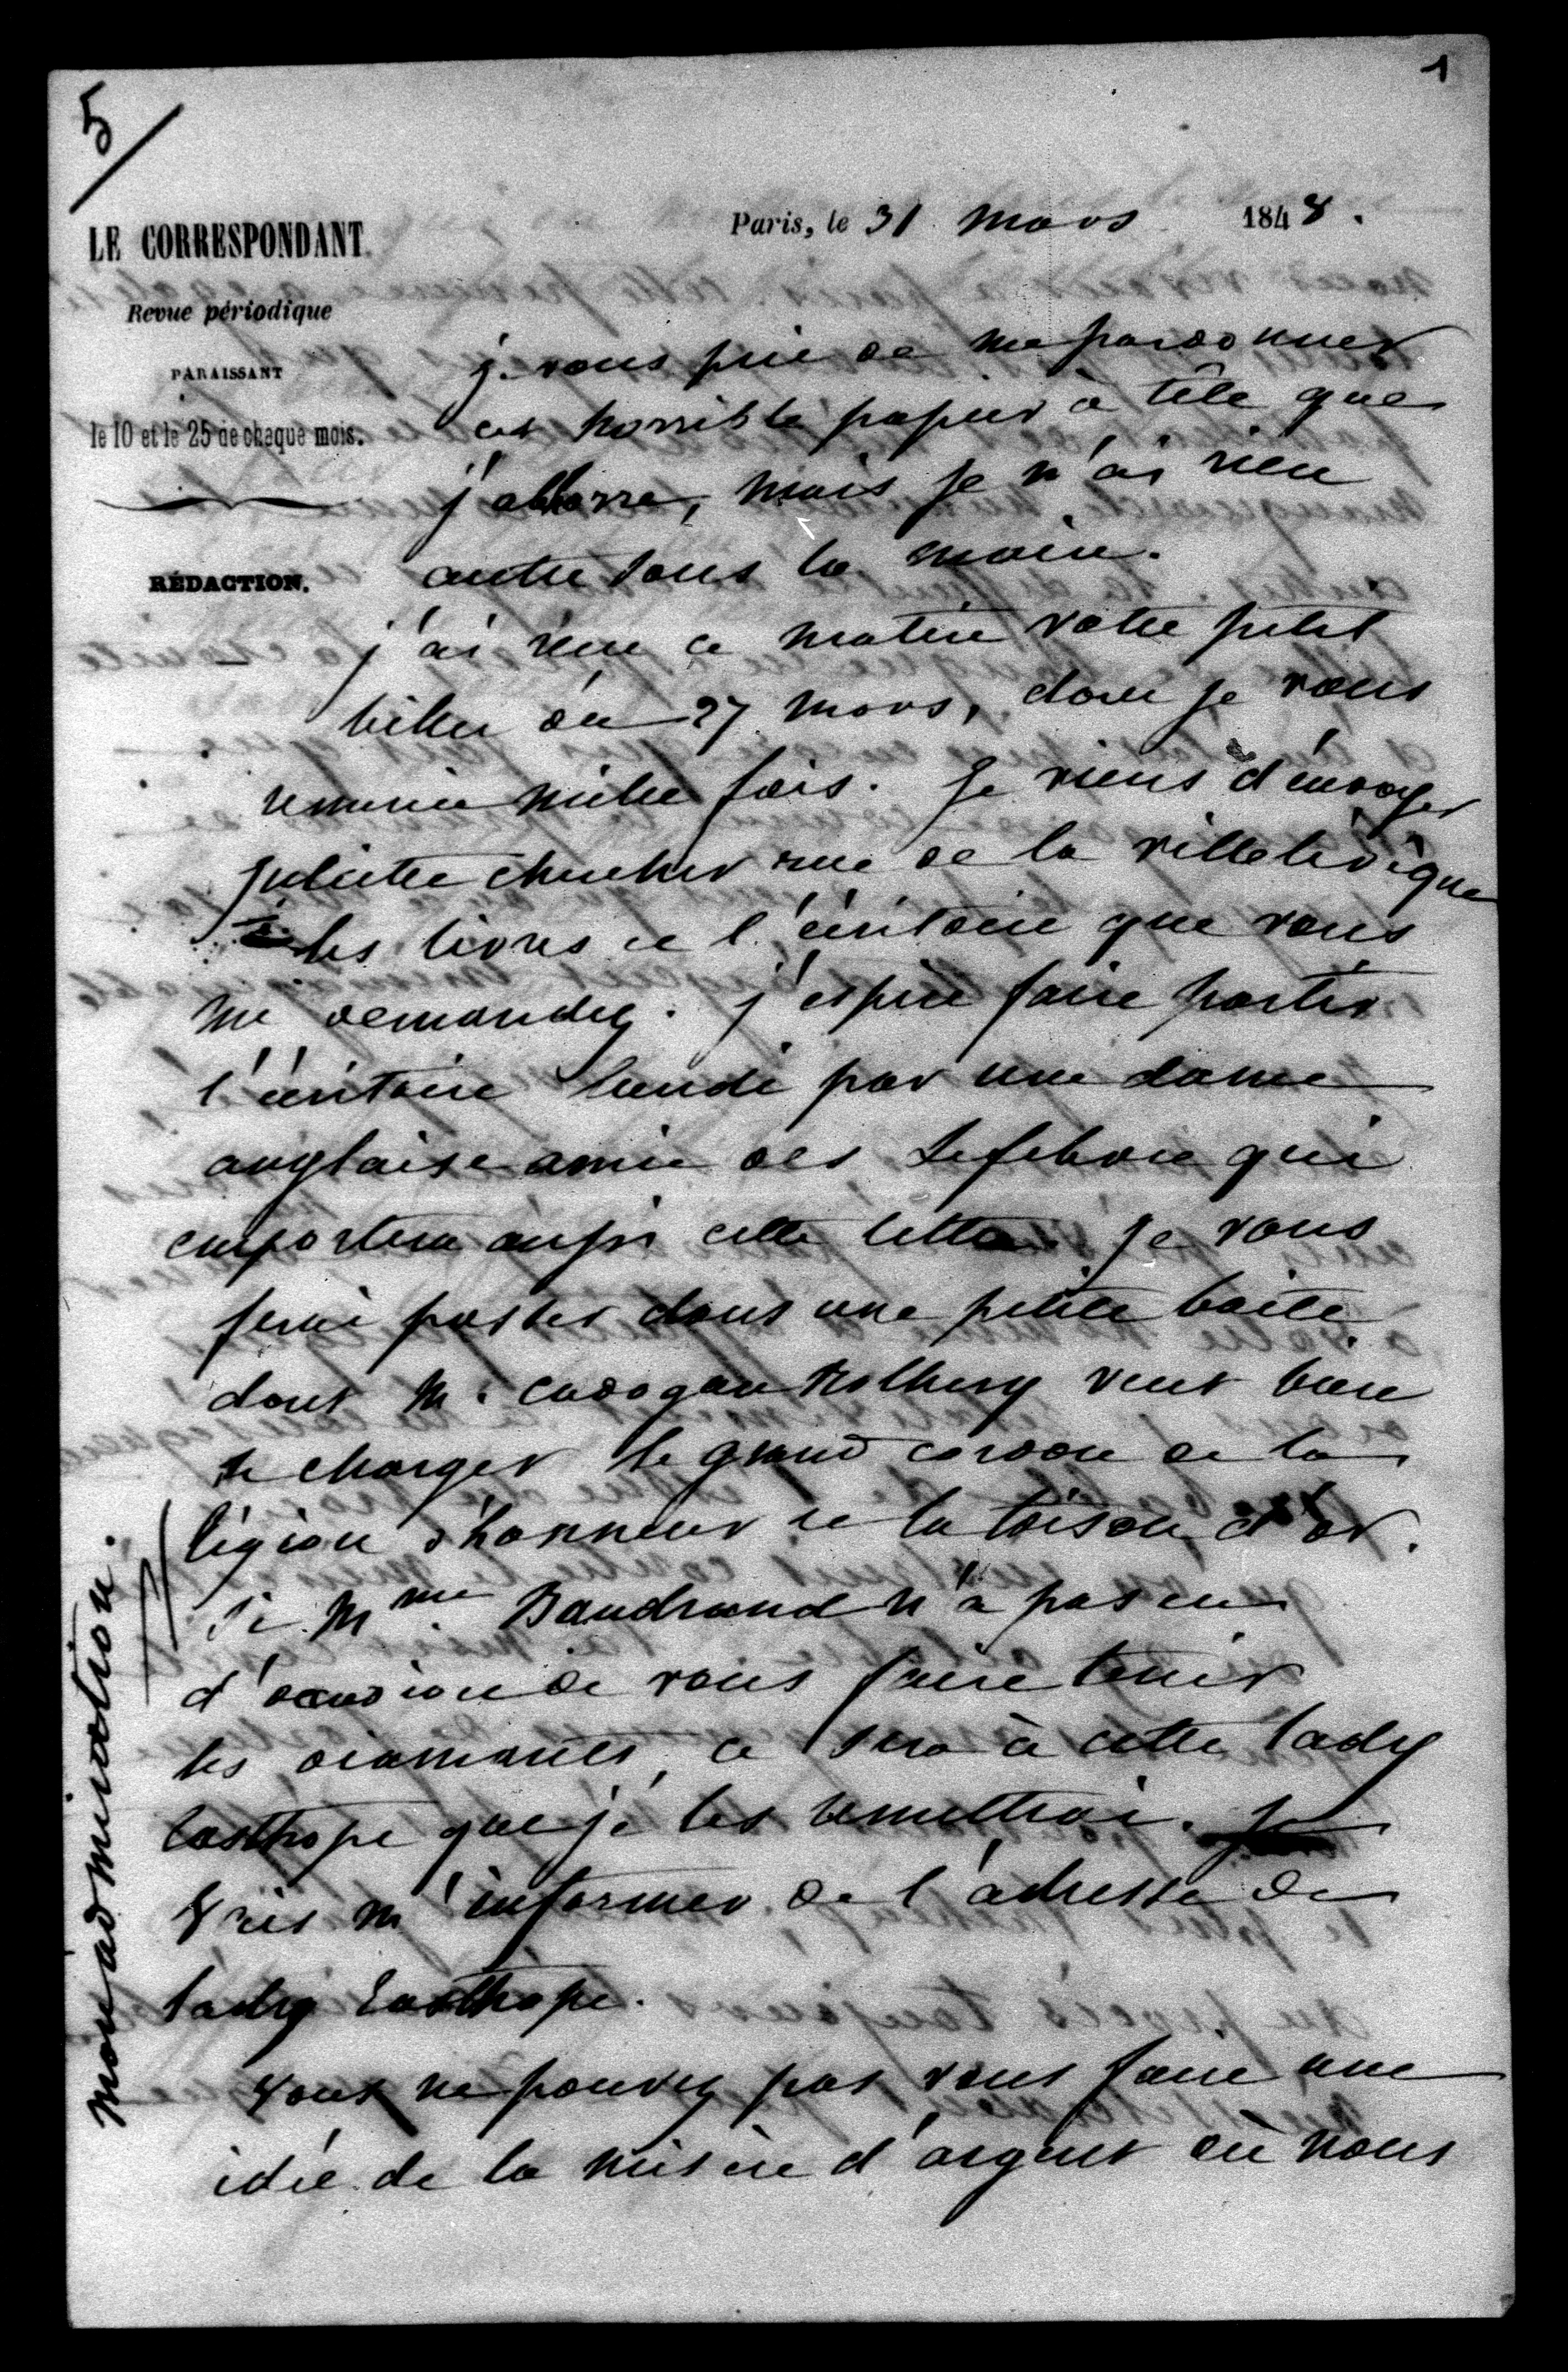 5
1
LE CORRESPONDANT
Revue périodique
PARAISSANT
le 10 et le 25 de chaque mois.
RÉDACTION.
Paris, le 31 mars 1848.
je vous prie de me pardonner
cet horrible papier à tête que
j'abhorre, mais je n'ai rien
autre sous la main.
j'ai reçu ce matin votre petit
billet du 27 mars, dont je vous
remercie mille fois. Je viens d'envoyer
Juliette chercher rue de la ville lévêque
les livres et l'écritoire que vous
me demandez. j'espère faire partir
l'écritoire lundi par une dame
anglaise amie des Lefebvre qui
emportera aussi cette lettre. je vous
ferai passer dans une petite boite
dont M. cadogan veut bien
se charger le grand cordon de la
légion d'honneur et la toison d'or.
Si Mme Baudrand n'a pas eu
d'occasion de vous faire tenir
les diamants, ce sera à cette lady
Easthope que je les remettrai. Je
vais m'informer de l'adresse de
lady Easthope.
vous ne pouvez pas vous faire une
idée de la misère d'argent où nous
mon admiration.